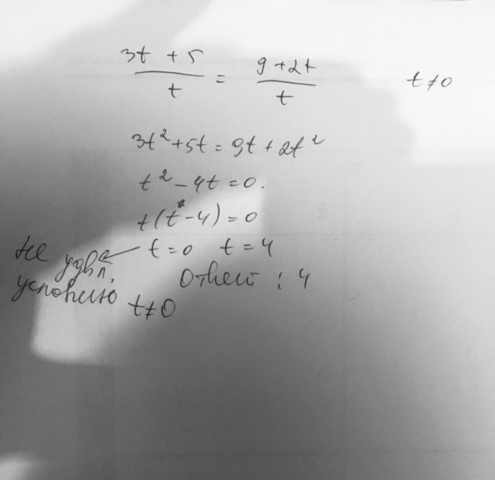 3t + 5 / t = 9 + 2t / t t ≠ 0
3t² + 5t = 9t + 2t²
t² - 4t = 0.
t(t - 4) = 0
t = 0 t = 4
не удвл. условию t ≠ 0
Ответ : 4